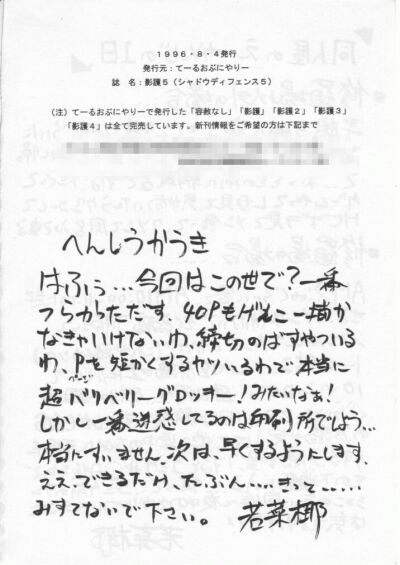 1996・8・4発行
発行元:てーるおぶにやりー
誌 名:影護5(シャドウディフェンス5)
(注)てーるおぶにやりーで発行した「容赦なし」「影護」「影護2」「影護3」
「影護4」は全て完売しています。新刊情報をご希望の方は下記まで
へんしうかうき
はふぅ…今回はこの世で?一番
つらかったです。40Pもゲんこー描か
なきゃいけないわ、締切のばすやついる
わ、Pを短かくするヤツいるわで本当に
ページ
超ベリベリーグロッキー!みたいなぁ!
しかし一番迷惑してるのは印刷所でしょう…
本当にすいません。次は、早くするようにします、
ええ、できるだけ、たぶん….きって…..
みすてないで下さい。 若菜椰